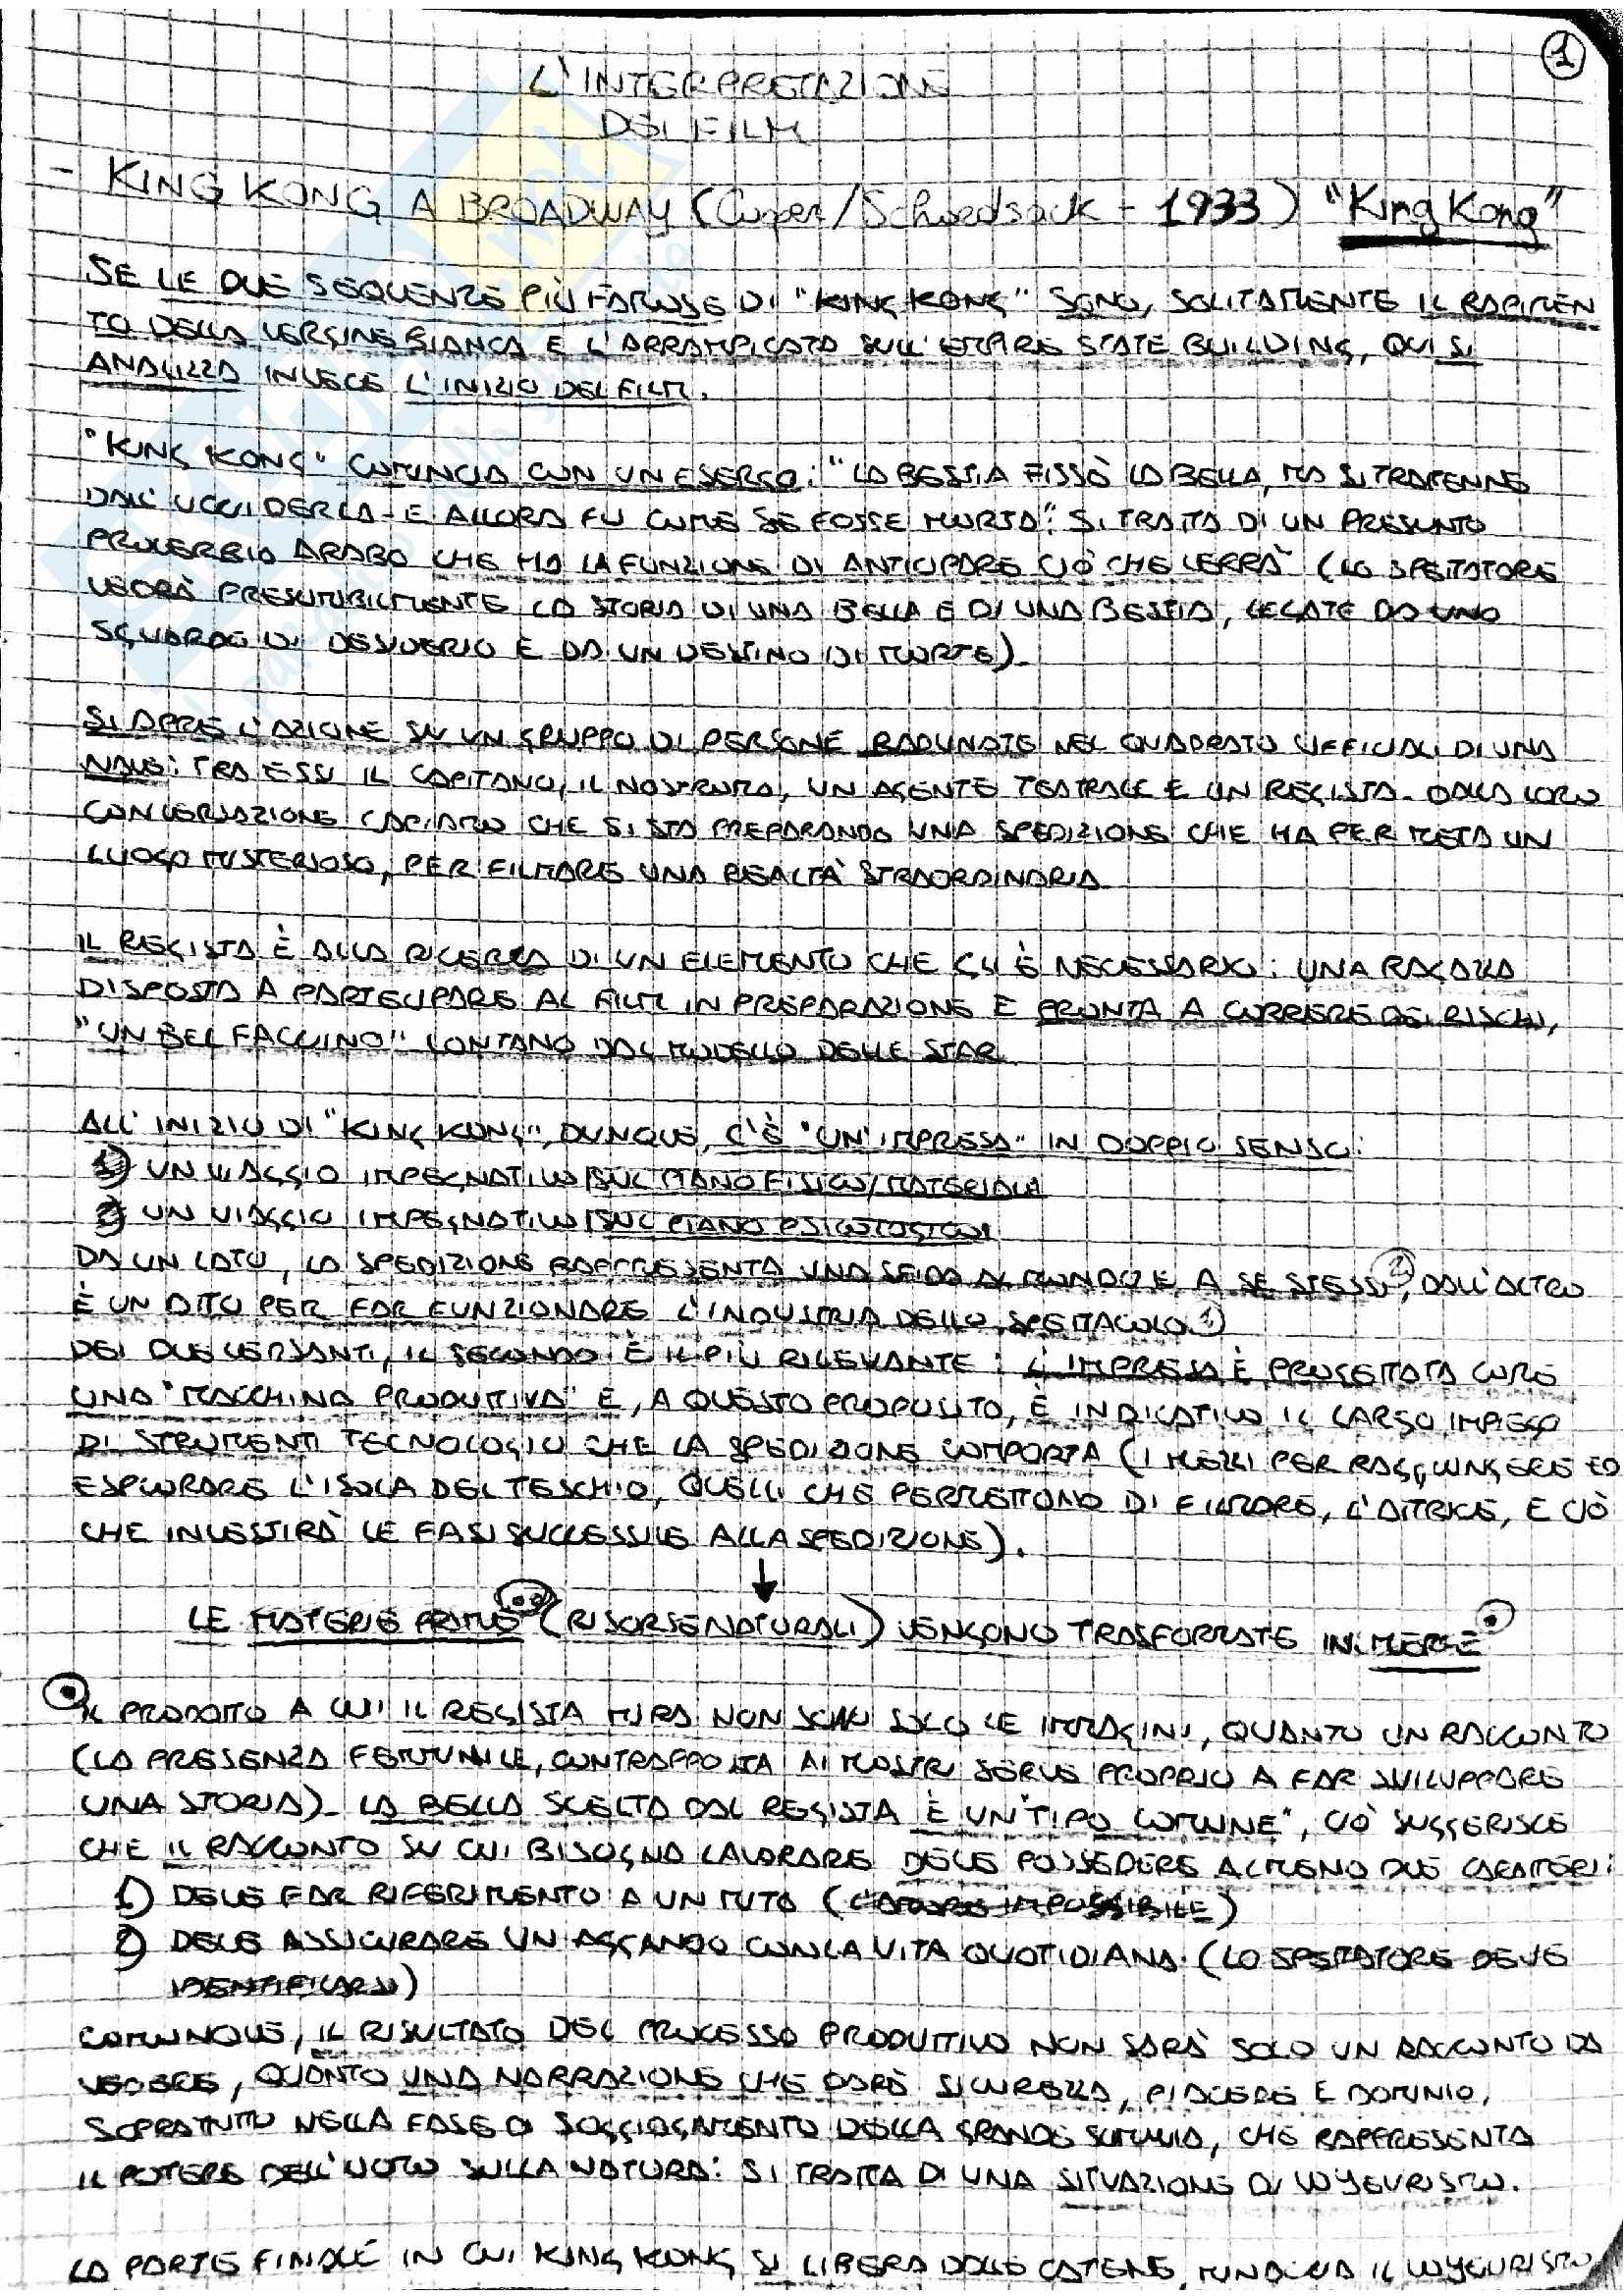 1
L'INTERPRETAZIONE
DEI FILM
- KING KONG A BROADWAY (Cooper/Schoedsack - 1933) "King Kong"
SE LE DUE SEQUENZE PIÙ FAMOSE DI "KING KONG" SONO, SOLITAMENTE IL RAPIMEN
TO DELLA VERGINE BIANCA E L'ARRAMPICATA SULL'EMPIRE STATE BUILDING, QUI SI
ANALIZZA INVECE L'INIZIO DEL FILM.
"KING KONG" COMINCIA CON UN ESERGO: "LA BESTIA FISSÒ LA BELLA, MA SI TRATENNE
DALL' UCCIDERLA - E ALLORA FU COME SE FOSSE MORTA". SI TRATTA DI UN PRESUNTO
PROVERBIO ARABO CHE HA LA FUNZIONE DI ANTICIPARE CIÒ CHE VERRÀ (LO SPETTATORE
VEDRÀ PRESUMIBILMENTE LA STORIA DI UNA BELLA E DI UNA BESTIA, LEGATE DA UNO
SGUARDO DI DESIDERIO E DA UN DESTINO DI MORTE).
SI APRE L'AZIONE SU UN GRUPPO DI PERSONE RADUNATE NEL QUADRATO UFFICIALI DI UNA
NAVE: TRA ESSI IL CAPITANO, IL NOSTROMO, UN AGENTE TEATRALE E UN REGISTA. DALLA LORO
CONVERSAZIONE CAPIAMO CHE SI STA PREPARANDO UNA SPEDIZIONE CHE HA PER META UN
LUOGO MISTERIOSO, PER FILMARE UNA REALTÀ STRAORDINARIA
IL REGISTA È ALLA RICERCA DI UN ELEMENTO CHE GLI È NECESSARIO: UNA RAGAZZA
DISPOSTA A PARTECIPARE AL FILM IN PREPARAZIONE E PRONTA A CORRERE DEI RISCHI,
"UN BEL FACCINO" LONTANO DAL MODELLO DELLE STAR
ALL' INIZIO DI "KING KONG", DUNQUE, C'È "UN'IMPRESA" IN DOPPIO SENSO:
1) UN VIAGGIO IMPEGNATIVO SUL PIANO FISICO/MATERIALE
2) UN VIAGGIO IMPEGNATIVO SUL PIANO PSICOLOGICO
DA UN LATO, LA SPEDIZIONE RAPPRESENTA UNA SFIDA AL MONDO E A SE STESSI 2, DALL'ALTRO
È UN DITO PER FAR FUNZIONARE L'INDUSTRIA DELLO SPETTACOLO. 1
DEI DUE VERSANTI, IL SECONDO È IL PIÙ RILEVANTE: L'IMPRESA È PROGETTATA COME
UNA "MACCHINA PRODUTTIVA" E, A QUESTO PROPOSITO, È INDICATIVO IL LARGO IMPIEGO
DI STRUMENTI TECNOLOGICI CHE LA SPEDIZIONE COMPORTA (I MEZZI PER RAGGIUNGERE ED
ESPLORARE L'ISOLA DEL TESCHIO, QUELLI CHE PERMETTONO DI FILMARE, L'ATTRICE, E CIÒ
CHE INVESTIRÀ LE FASI SUCCESSIVE ALLA SPEDIZIONE).
LE MATERIE PRIME (RISORSE NATURALI) VENGONO TRASFORMATE IN MERCE
IL PRODOTTO A CUI IL REGISTA MIRA NON SONO SOLO LE IMMAGINI, QUANTO UN RACCONTO
(LA PRESENZA FEMMINILE, CONTRAPPOSTA AI MOSTRI SERVE PROPRIO A FAR SVILUPPARE
UNA STORIA). LA BELLA SCELTA DAL REGISTA È UN "TIPO COMUNE", CIÒ SUGGERISCE
CHE IL RACCONTO SU CUI BISOGNA LAVORARE DEVE POSSEDERE ALMENO DUE CARATTERI:
1) DEVE FAR RIFERIMENTO A UN MITO (L'AMORE IMPOSSIBILE)
2) DEVE ASSICURARE UN AGGANCIO CON LA VITA QUOTIDIANA. (LO SPETTATORE DEVE
IDENTIFICARSI)
COMUNQUE, IL RISULTATO DEL PROCESSO PRODUTTIVO NON SARÀ SOLO UN RACCONTO DA
VEDERE, QUANTO UNA NARRAZIONE CHE DARÀ SICUREZZA, PIACERE E DOMINIO,
SOPRATTUTTO NELLA FASE DI SOGGIOGAMENTO DELLA GRANDE SCIMMIA, CHE RAPPRESENTA
IL POTERE DELL'UOMO SULLA NATURA: SI TRATTA DI UNA SITUAZIONE DI VOYEURISMO.
LA PARTE FINALE IN CUI KING KONG SI LIBERA DALLE CATENE, MINACCIA IL VOYEURISMO